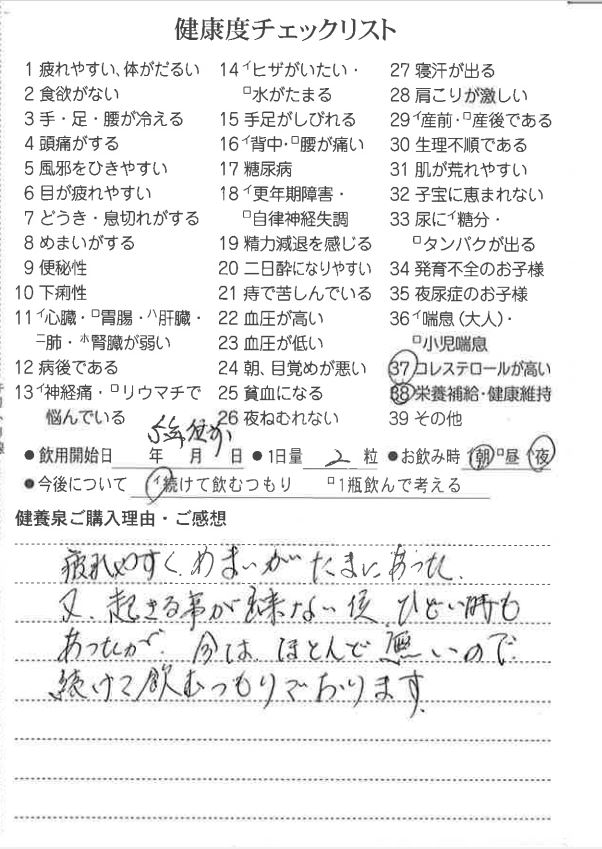 健康度チェックリスト
1 疲れやすい、体がだるい
2 食欲がない
3 手・足・腰が冷える
4 頭痛がする
5 風邪をひきやすい
6 目が疲れやすい
7 どうき・息切れがする
8 めまいがする
9 便秘性
10 下痢性
11 ィ心臓・ロ胃腸・ハ肝臓・
ニ肺・ホ腎臓が弱い
12 病後である
13 ィ神経痛・ロリウマチで
悩んでいる
14 ィヒザがいたい・
ロ水がたまる
15 手足がしびれる
16 ィ背中・ロ腰が痛い
17 糖尿病
18 ィ更年期障害・
ロ自律神経失調
19 精力減退を感じる
20 二日酔になりやすい
21 痔で苦しんでいる
22 血圧が高い
23 血圧が低い
24 朝、目覚めが悪い
25 貧血になる
26 夜ねむれない
27 寝汗が出る
28 肩こりが激しい
29 ィ産前・ロ産後である
30 生理不順である
31 肌が荒れやすい
32 子宝に恵まれない
33 尿にィ糖分・
ロタンパクが出る
34 発育不全のお子様
35 夜尿症のお子様
36 ィ喘息(大人)・
ロ小児喘息
37 コレステロールが高い
38 栄養補給・健康維持
39 その他
5年位前
●飲用開始日 年 月 日 ●1日量 2 粒 ●お飲み時 ィ朝 ロ昼 ィ夜
●今後について ィ続けて飲むつもり ロ1瓶飲んで考える
健養泉ご購入理由・ご感想
疲れやすく、めまいがたまにあった。
又、起きる事が出来ない位、ひどい時も
あったが、今は、ほとんど無いので
続けて飲むつもりでおります。